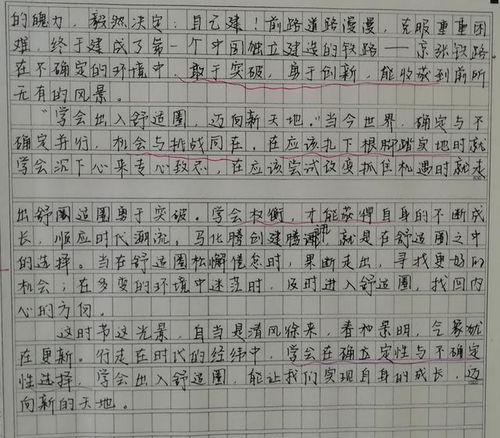 的魄力，毅然决定：自己建！前路道路漫漫，克服重重困
难，终于建成了第一个中国独立建造的铁路——京张铁路
在不确定的环境中，敢于突破，勇于创新，能收获到前所
无有的风景。
“学会出入舒适圈，迈向新天地。”当今世界，确定与不
确定并行，机会与挑战同在。在应该扎下根脚踏实地时就
学会沉下心来专心致志，在应该尝试改变抓住机遇时就走
出舒圈适圈勇于突破。学会权衡，才能获得自身的不断成
长，顺应时代潮流。马化腾创建腾讯，就是在舒适圈之中
的选择。当在舒适圈松懈倦怠时，果断走出，寻找更好的
机会；在多变的环境中迷茫时，及时进入舒适圈，找回内
心的方向。
这时节这光景，自当是清风徐来，春和景明，气象犹
在更新。行走在时代的经纬中，学会在确立定性与不确定
性选择，学会出入舒适圈，能让我们实现自身的成长，迈
向新的天地。